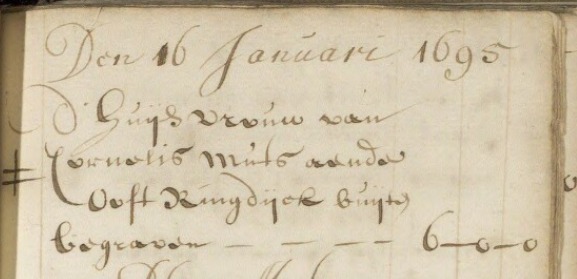 Den 16 Januari 1695
d' Huijs vrouw van
Cornelis Muts aende
Oost Ringdijck buijte
begraven — — — — 6—0—0